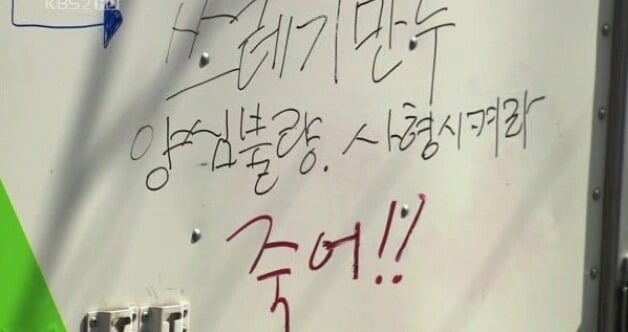 KBS2
쓰레기만두
양심불량. 사형시켜라
죽어!!